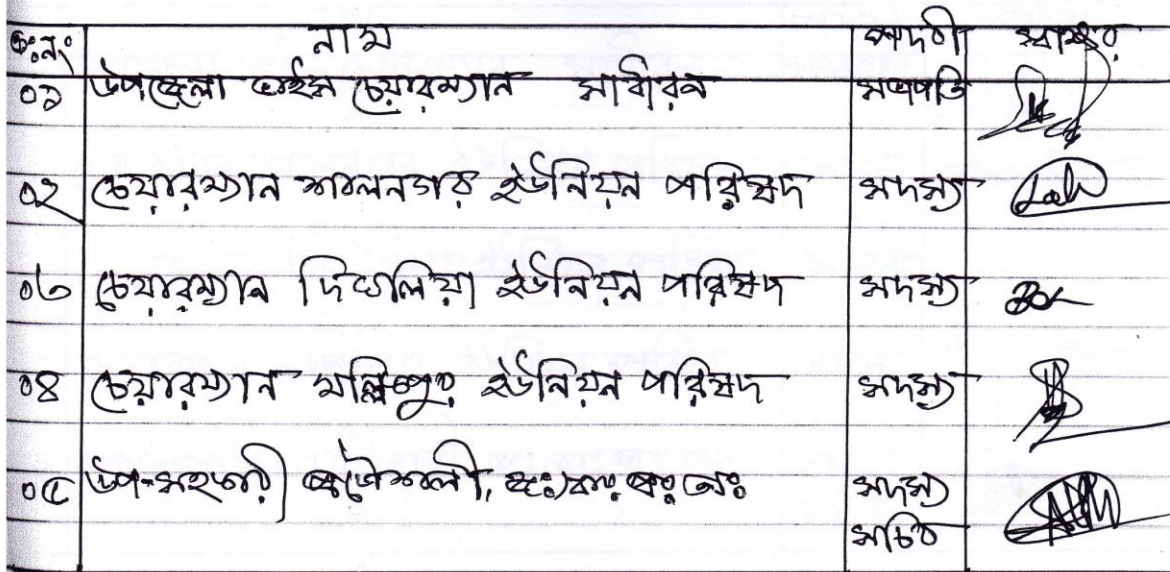 ক্রঃনং নাম পদবী স্বাক্ষর
০১ উপজেলা ভাইস চেয়ারম্যান সাধারন সভাপতি
০২ চেয়ারম্যান শালনগর ইউনিয়ন পরিষদ সদস্য
০৩ চেয়ারম্যান দিঘলিয়া ইউনিয়ন পরিষদ সদস্য
০৪ চেয়ারম্যান মল্লিকপুর ইউনিয়ন পরিষদ সদস্য
০৫ উপ-সহকারী প্রকৌশলী, সদস্য
সচিব